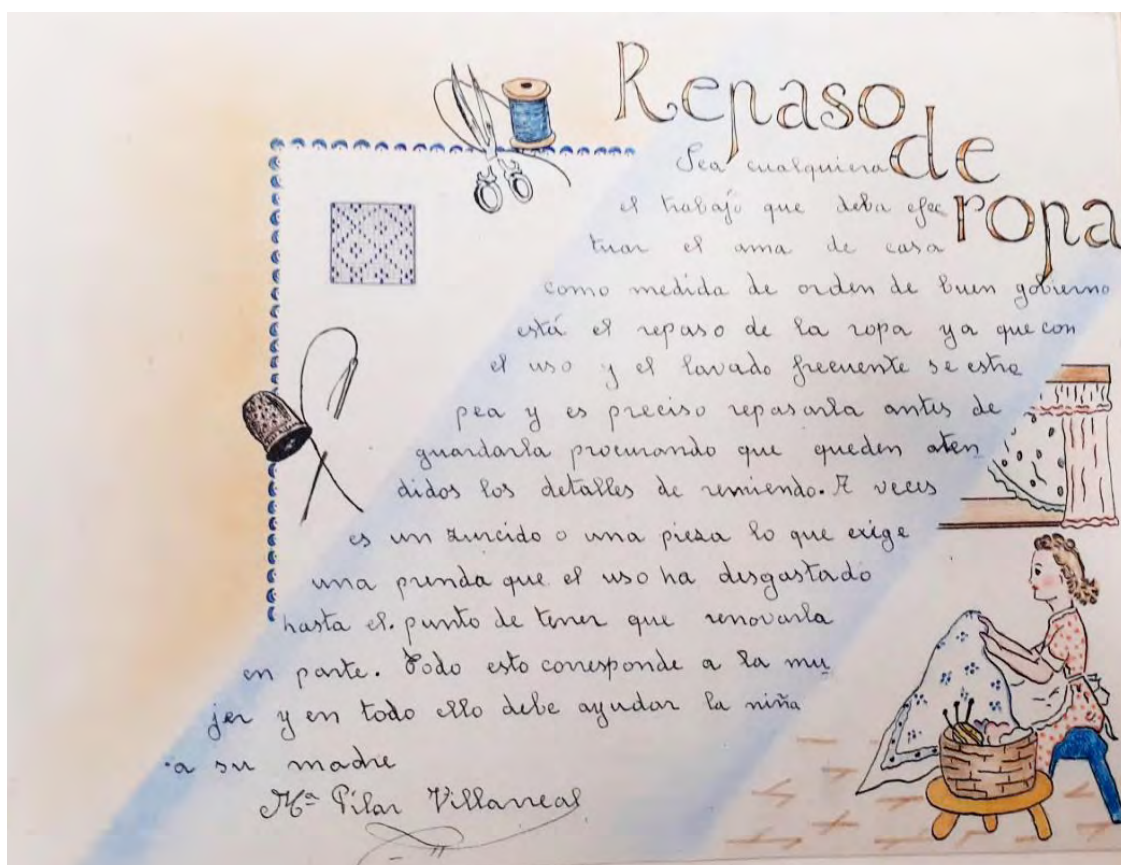 Repaso
de
ropa
Sea cualquiera
el trabajo que deba efec
tuar el ama de casa
como medida de orden de buen gobierno
está el repaso de la ropa ya que con
el uso y el lavado frecuente se estro
pea y es preciso repasarla antes de
guardarla procurando que queden aten
didos los detalles de remiendo. A veces
es un zurcido o una pieza lo que exige
una prenda que el uso ha desgastado
hasta el. punto de tener que renovarla
en parte. Todo esto corresponde a la mu
jer y en todo ello debe ayudar la niña
a su madre
Mª Pilar Villarreal